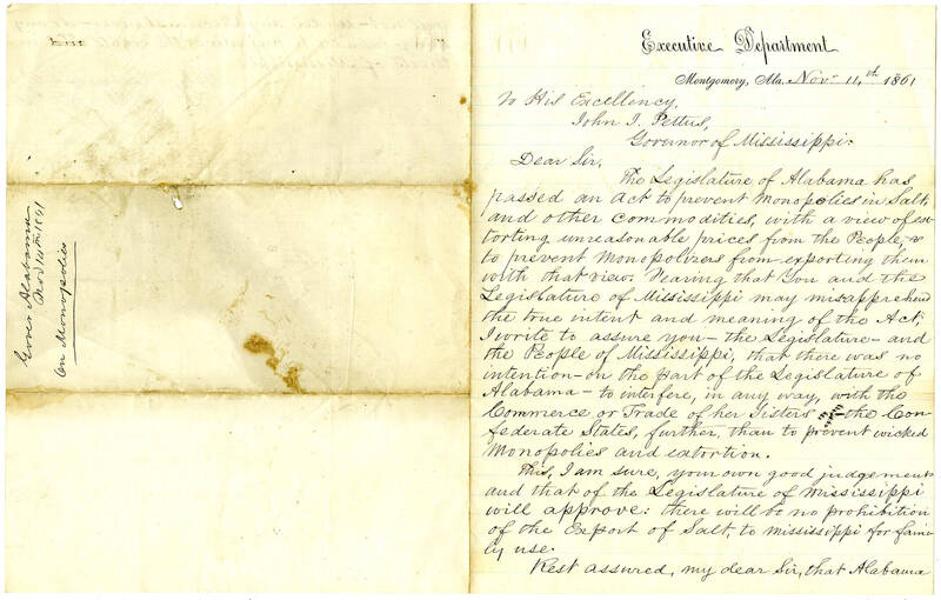 Gover Alabama
Nov 11th 1861
On Monopolies
Executive Department
Montgomery, Ala. Nov- 11,th 1861
To His Excellency,
John J. Pettus,
Governor of Mississippi.
Dear Sir,
The Legislature of Alabama has
passed an Act to prevent monopolies in Salt
and other commodities, with a view of ex-
torting unreasonable prices from the People, &
to prevent Monopolizers from exporting them
with that view. Fearing that You and the
Legislature of Mississippi may misapprehend
the true intent and meaning of the Act,
I write to assure you - the Legislature - and
the People of Mississippi, that there was no
intention - on the part of the Legislature of
Alabama - to interfere, in any way, with the
Commerce or Trade of her Sisters the Con-
federate States, further, than to prevent wicked
Monopolies and extortion.
This, I am sure, your own good judgement
and that of the Legislature of Mississippi
will approve: there will be no prohibition
of the Export of Salt, to Mississippi for fami-
ly use.
Rest assured, my dear Sir, that Alabama